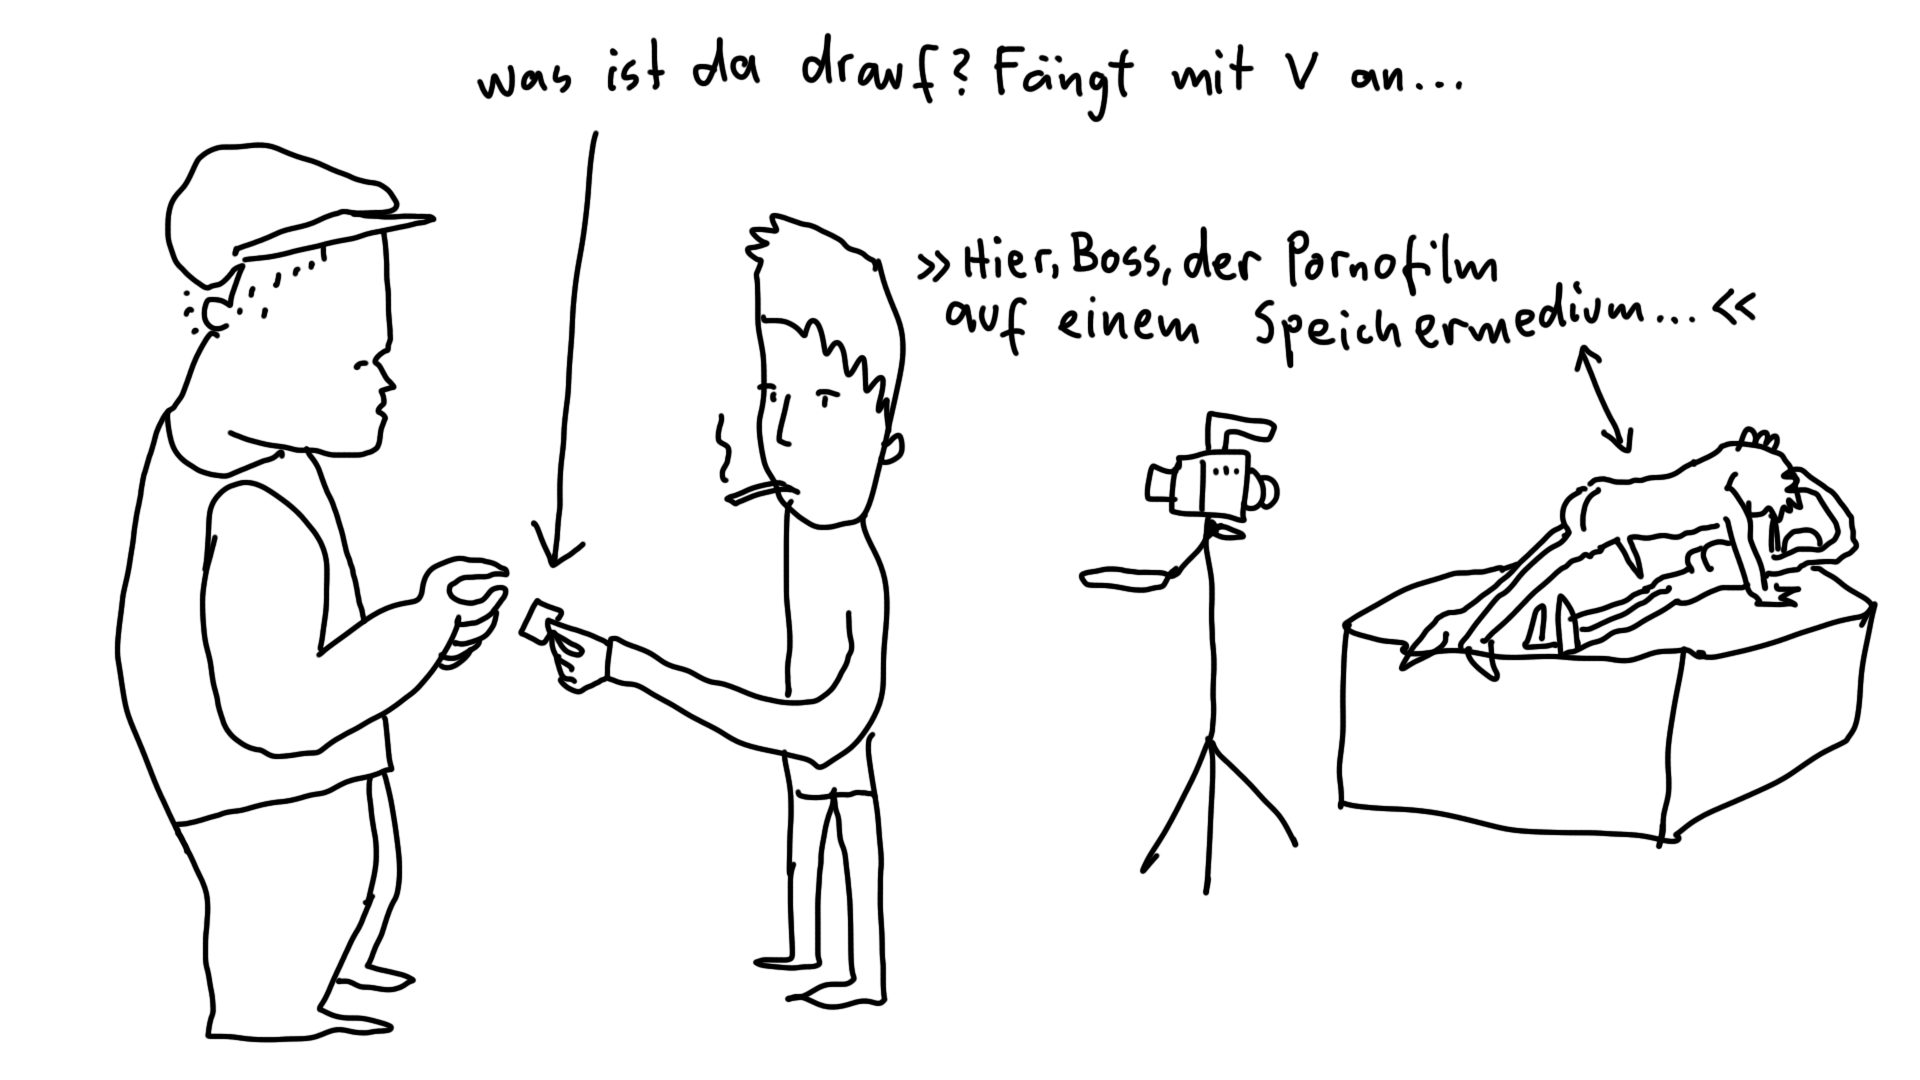 was ist da drauf? Fängt mit V an...
»Hier, Boss, der Pornofilm
auf einem Speichermedium...«